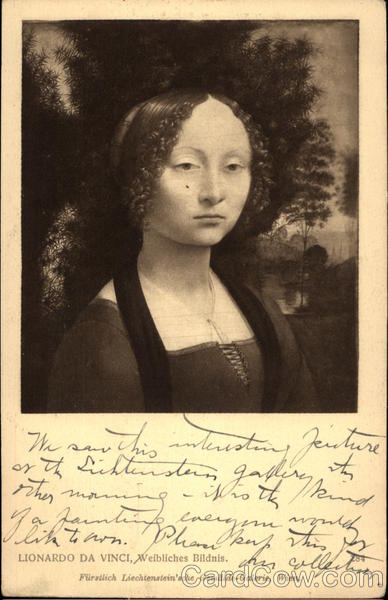 We saw this interesting picture
at the Lichtenstein gallery the
other morning – it is the kind
of a painting everyone would
like to own. Please keep this for
our collection
LIONARDO DA VINCI, Weibliches Bildnis.
Fürstlich Liechtenstein'sche Gemälde-Galerie, Wien.
CardCow.com